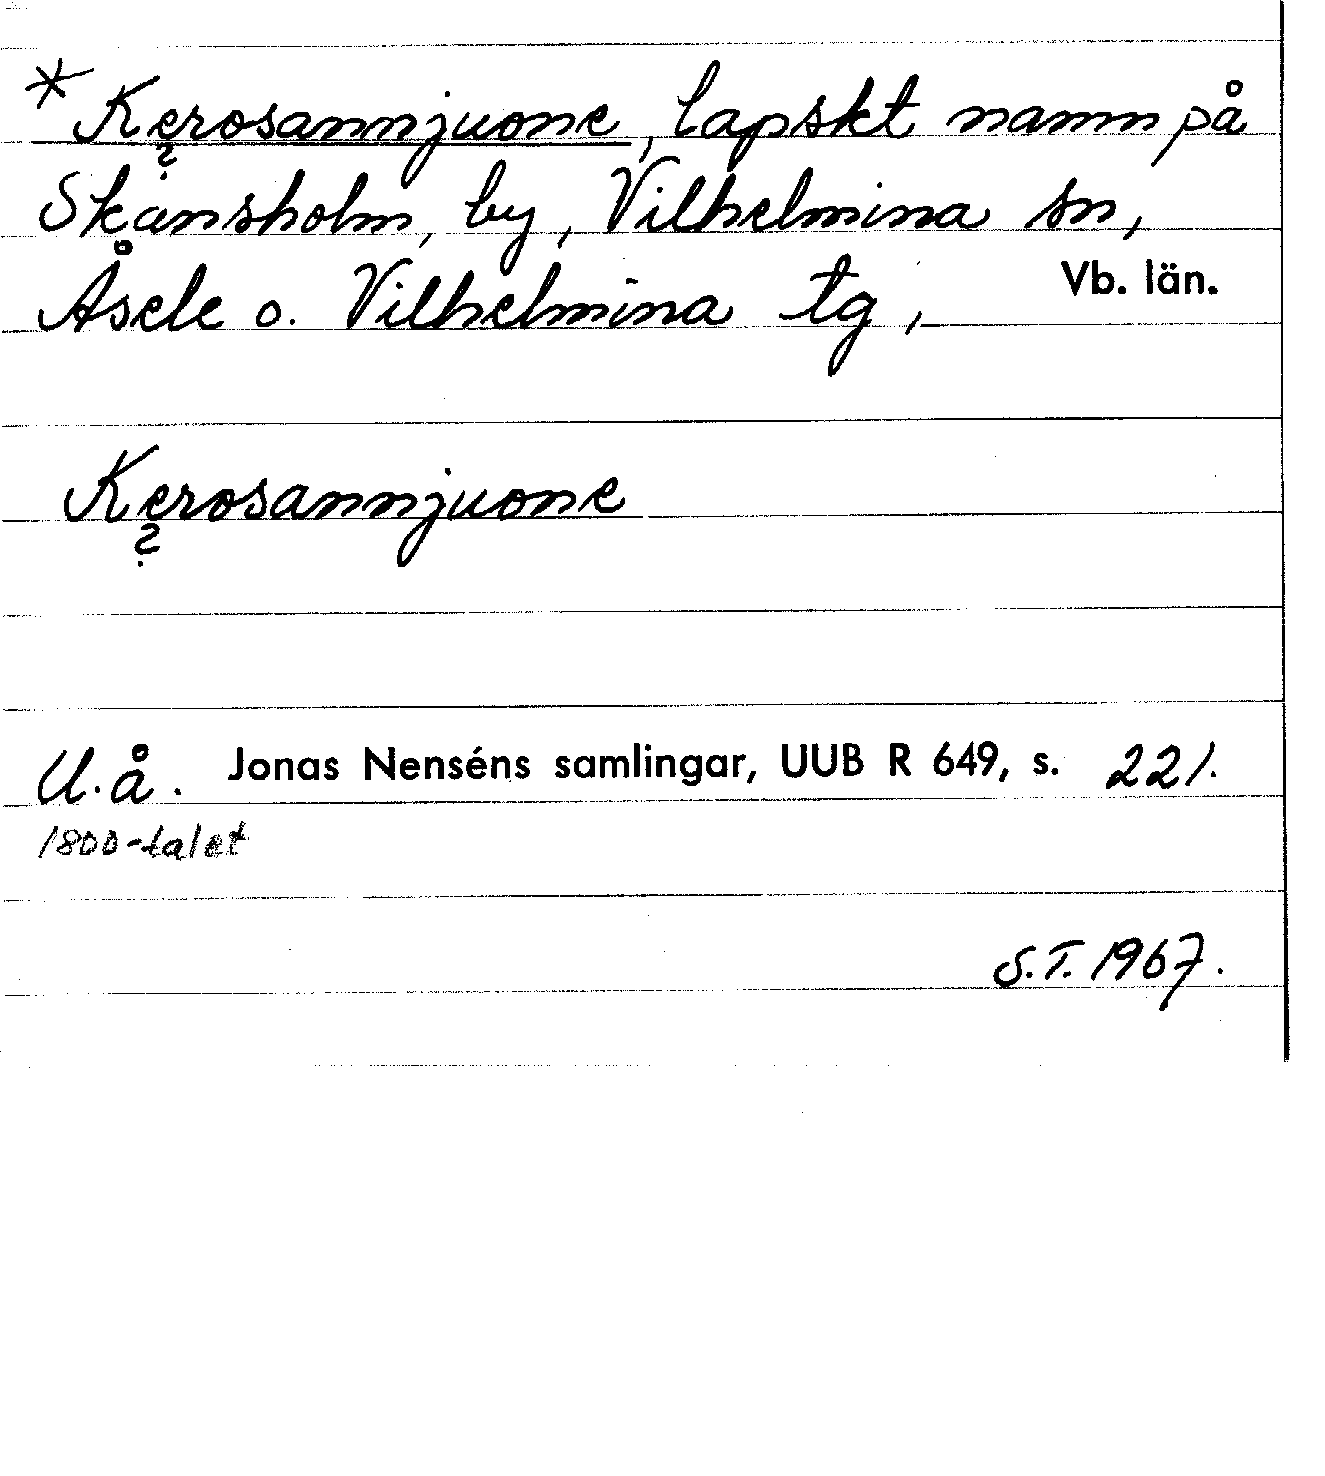 * Kerosannjuone, lapskt namn på
?
Skansholm, by, Vilhelmina sn,
Åsele o. Vilhelmina tg, Vb. län.
Kerosannjuone
?
U.å. Jonas Nenséns samlingar, UUB R 649, s. 221.
1800-talet
S.T. 1967.